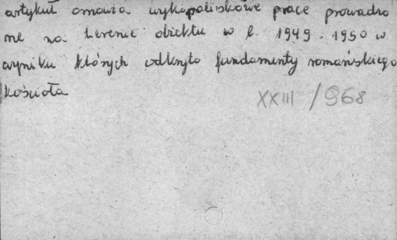 artykuł omawia wykopaliskowe prace prowadzo
ne na terenie obiektu w l. 1949-1950 w
wyniku których odkryto fundamenty romańskiego
kościoła
XXIII/968